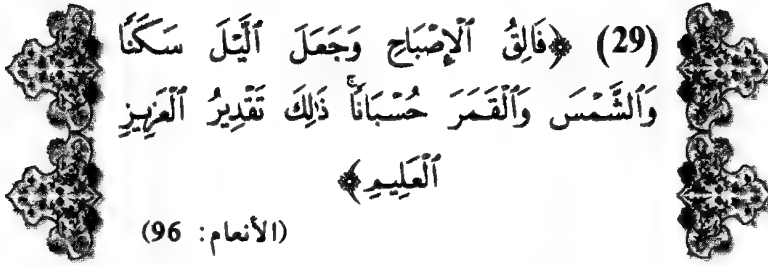 (29) ﴿فَالِقُ ٱلْإِصْبَاحِ وَجَعَلَ ٱلَّيْلَ سَكَنًا
وَٱلشَّمْسَ وَٱلْقَمَرَ حُسْبَانًاۚ ذَٰلِكَ تَقْدِيرُ ٱلْعَزِيزِ
ٱلْعَلِيمِ﴾
(الأنعام: 96)